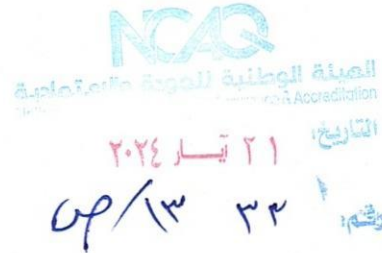 NCAQ
الهيئة الوطنية للجودة والاعتمادية
Accreditation
التاريخ: ٢١ آيـــار ٢٠٢٤
رقم: ٣٣ ١٣/ص